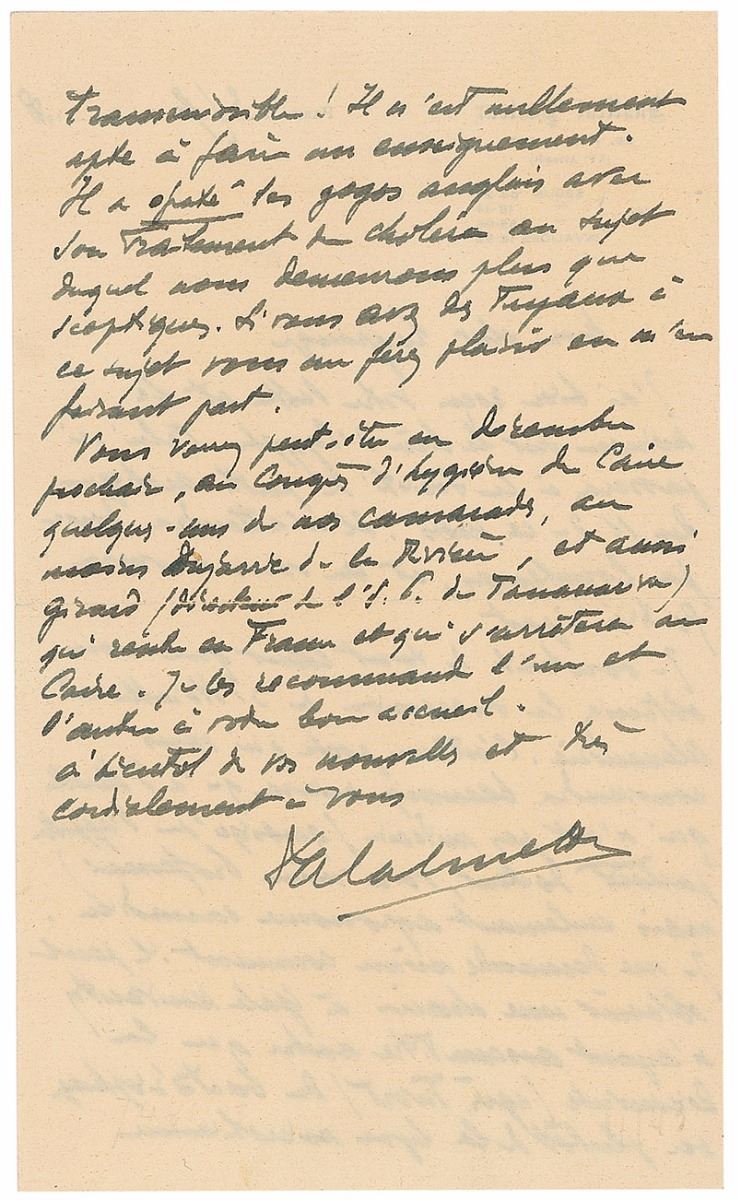 transmissible ! Il n'est nullement
apte à faire un enseignement.
Il a épaté les gogos anglais avec
son Traitement du choléra au sujet
duquel nous demeurons plus que
sceptiques. Si vous avez des Tuyaux à
ce sujet vous me ferez plaisir en m'en
faisant part.
Vous verrez peut-être en décembre
prochain, au Congrès d'hygiène du Caire
quelques-uns de nos camarades, au
moins Dujarric de la Rivière, et aussi
Girard (directeur de l'I. P. de Tananarive)
qui rentre en France et qui s'arrêtera au
Caire. Je les recommande l'un et
l'autre à votre bon accueil.
à bientôt de vos nouvelles et très
cordialement à vous
A Calmette